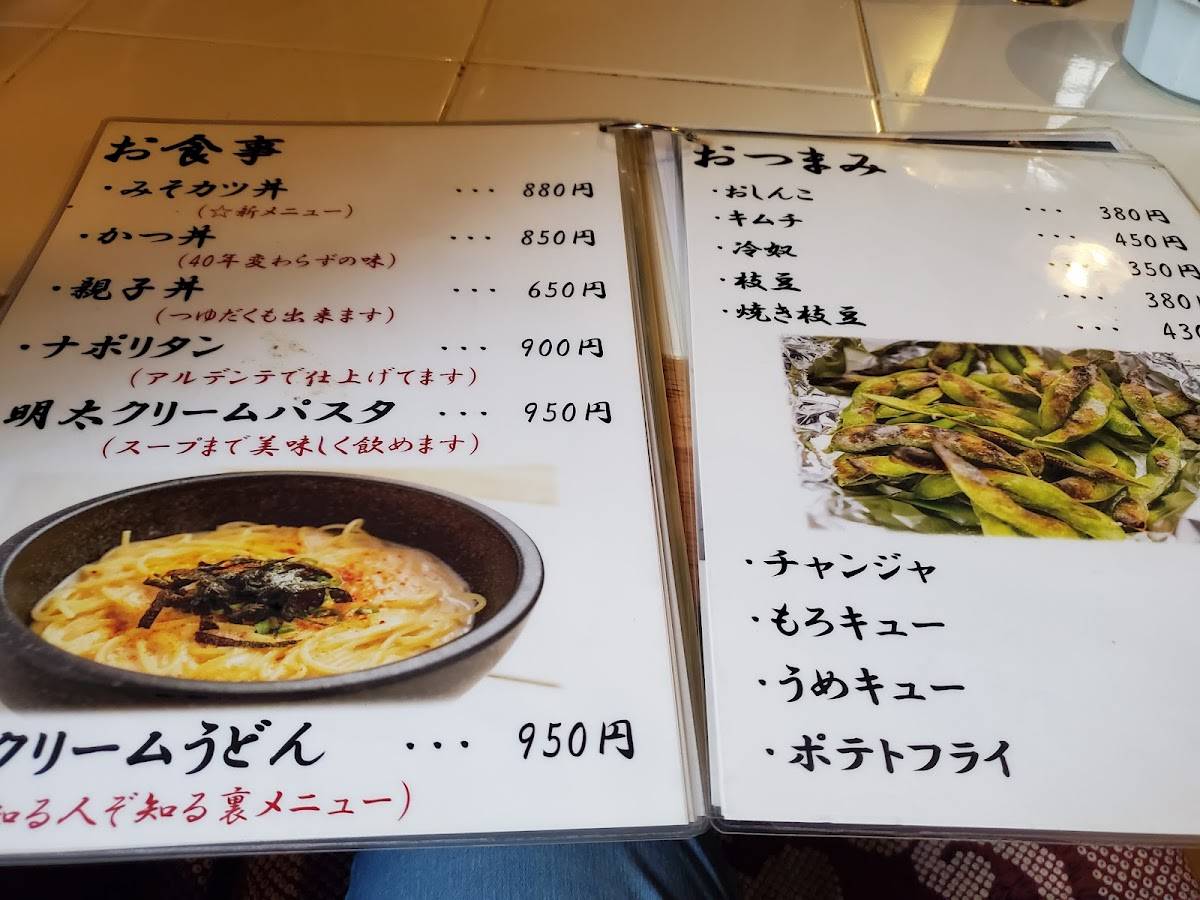 お食事
・みそカツ丼 ··· 880円
(☆新メニュー)
・かつ丼 ··· 850円
(40年変わらずの味)
・親子丼 ··· 650円
(つゆだくも出来ます)
・ナポリタン ··· 900円
(アルデンテで仕上げてます)
明太クリームパスタ ··· 950円
(スープまで美味しく飲めます)
クリームうどん ··· 950円
知る人ぞ知る裏メニュー)
おつまみ
・おしんこ ··· 380円
・キムチ ··· 450円
・冷奴 ··· 350円
・枝豆 ··· 380円
・焼き枝豆 ··· 430
・チャンジャ
・もろキュー
・うめキュー
・ポテトフライ